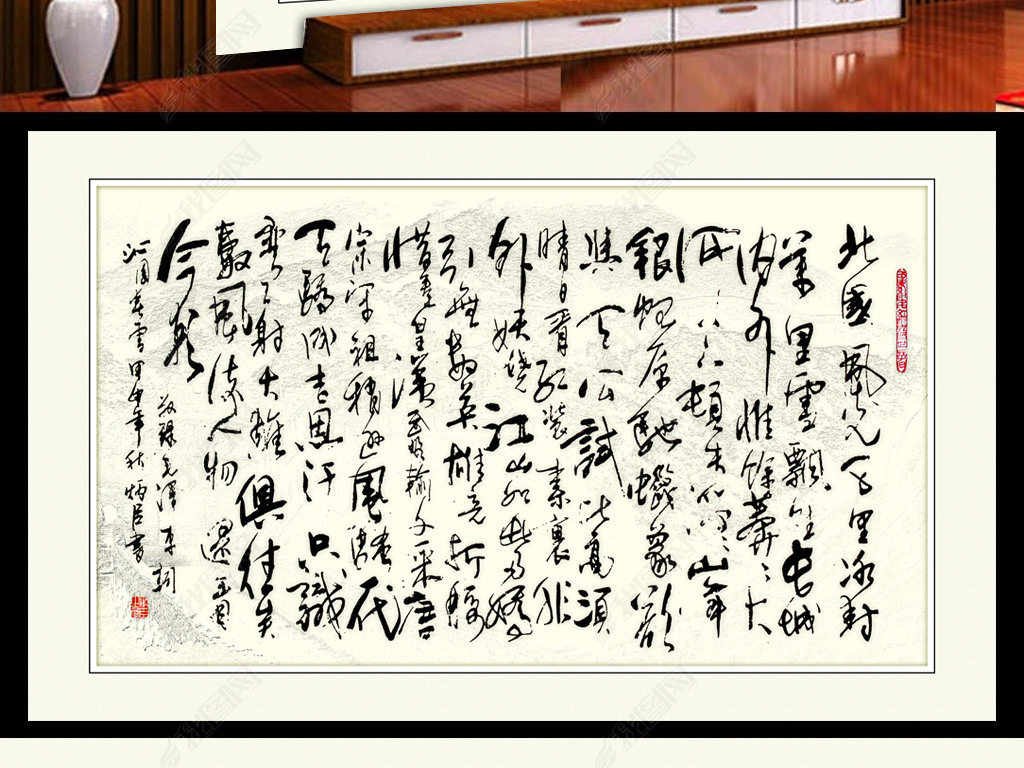 北國風光千里冰封
萬里雪飄望長城
內外惟餘莽々大
河上下頓失滔々山舞
銀蛇原馳蠟象欲
與天公試比高須
晴日看紅裝素裹
外妖嬈江山如此多嬌
引無數英雄競折腰
惜秦皇漢武略輸文采唐
宗宋祖稍遜風騷一代
天驕成吉思汗只識
彎弓射大雕俱往矣
數風流人物還看
今朝
敬錄毛澤東詞
沁園春雪甲申年秋炳臣書
我图网